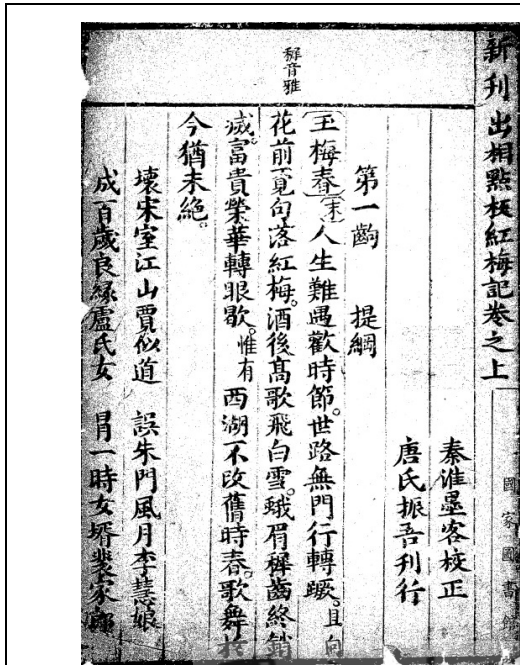 新刊出相點板紅梅記卷之上
國家圖書館
秦淮墨客校正
唐氏振吾刊行
穉音雅
第一齣　提綱
玉梅春 末 人生難遇歡時節。世路無門行轉蹶。且向
花前覓句落紅梅。酒後高歌飛白雪。蛾眉穉齒終銷
滅。富貴榮華轉眼歇。惟有西湖不改舊時春。歌舞於
今猶未絕。
壞宋室江山賈似道　誤朱門風月李慧娘
成百歲良緣盧氏女　冒一時女壻裴家郎